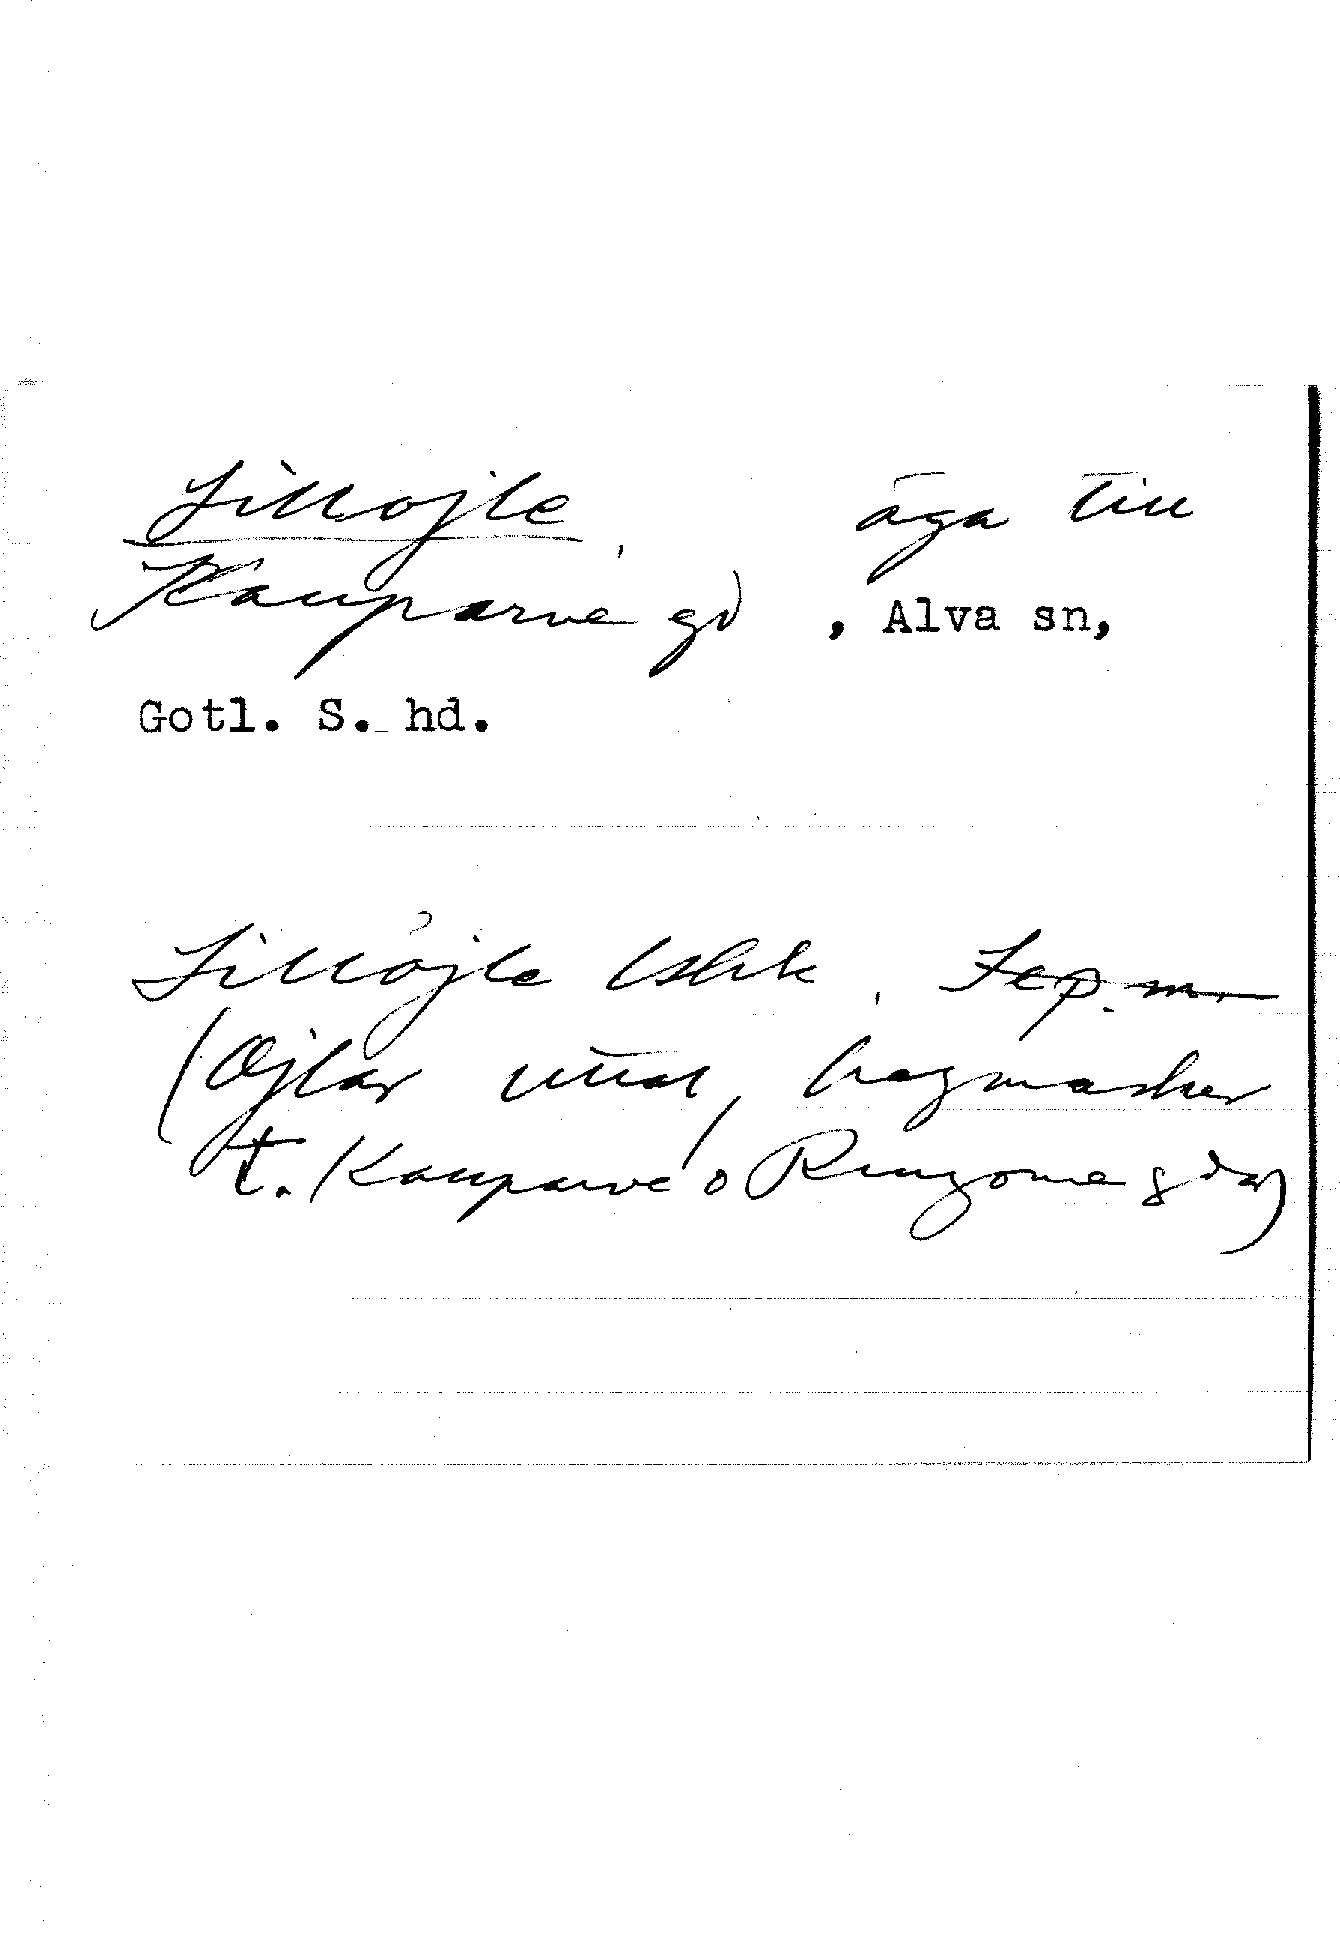 Lillojle, äga till
Kauparve gd, Alva sn,
Gotl. S. hd.
Lillojle Lslik.
(Ojlar uttal, hagmarker
t. Kauparve o Ringome gdar)